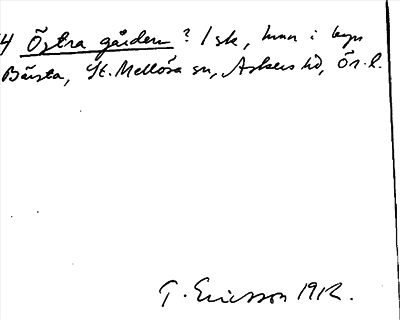 4 Östra gården ? 1 sk, hmn i byn
Bärsta, St. Mellösa sn, Askers hd, Ör. l.
T. Ericsson 1912.